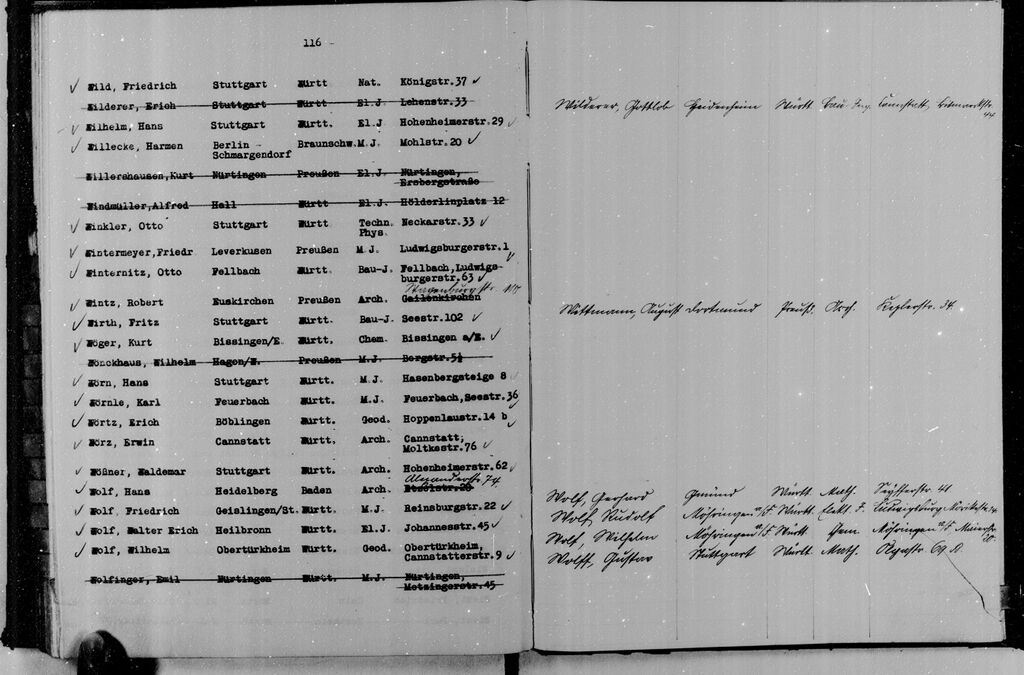 116 -
Wild, Friedrich Stuttgart Württ Nat. Königstr.37
Wilderer, Erich Stuttgart Württ El.J Lehenstr.33
Wilhelm, Hans Stuttgart Württ. El.J Hohenheimerstr.29
Willecke, Harmen Berlin - Braunschw. M.J. Mohlstr.20
Schmargendorf
Willershausen,Kurt Nürtingen Preußen El.J. Nürtingen,
Ersbergstraße
Windmüller,Alfred Hall Württ El.J. Hölderlinplatz 12
Winkler, Otto Stuttgart Württ Techn. Neckarstr.33
Phys.
Wintermeyer,Friedr Leverkusen Preußen M.J. Ludwigsburgerstr.1
Winternitz, Otto Fellbach Württ. Bau-J. Fellbach,Ludwigs-
burgerstr.63
Wintz, Robert Euskirchen Preußen Arch. Gailenkirchen
Wirth, Fritz Stuttgart Württ. Bau-J. Seestr.102
Wöger, Kurt Bissingen/E. Württ. Chem. Bissingen a/E.
Wönckhaus, Wilhelm Hagen/W. Preußen M.J. Bergstr.5½
Wörn, Hans Stuttgart Württ. M.J. Hasenbergsteige 8
Wörnle, Karl Feuerbach Württ. M.J. Feuerbach,Seestr.36
Wörtz, Erich Böblingen Württ. Geod. Hoppenlaustr.14 b
Wörz, Erwin Cannstatt Württ. Arch. Cannstatt,
Moltkestr.76
Wößner, Waldemar Stuttgart Württ. Arch. Hohenheimerstr.62
Alexanderstr. 74
Wolf, Hans Heidelberg Baden Arch.
Wolf, Friedrich Geislingen/St. Württ. M.J. Reinsburgstr.22
Wolf, Walter Erich Heilbronn Württ. El.J. Johannesstr.45
Wolf, Wilhelm Obertürkheim Württ. Geod. Obertürkheim,
Cannstatterstr.9
Wolfinger, Emil Nürtingen Württ. M.J. Nürtingen,
Metzingerstr.45
Wilderer, Gottlob Heidenheim Württ Bau Ing. Cannstatt, Bismarckstr.
44
Wittmann, August Dortmund Preuß. Arch. Keplerstr. 34
Wolf, Gerhard Gmünd Württ. Math. 41
Wolf, Rudolf Möhringen a/F. Württ. Elekt. J. Ludwigsburg
Wolf, Wilhelm Möhringen a/F. Württ. Möhringen a/F.
Wolff, Gustav Stuttgart Württ. Math. Olgastr. 69